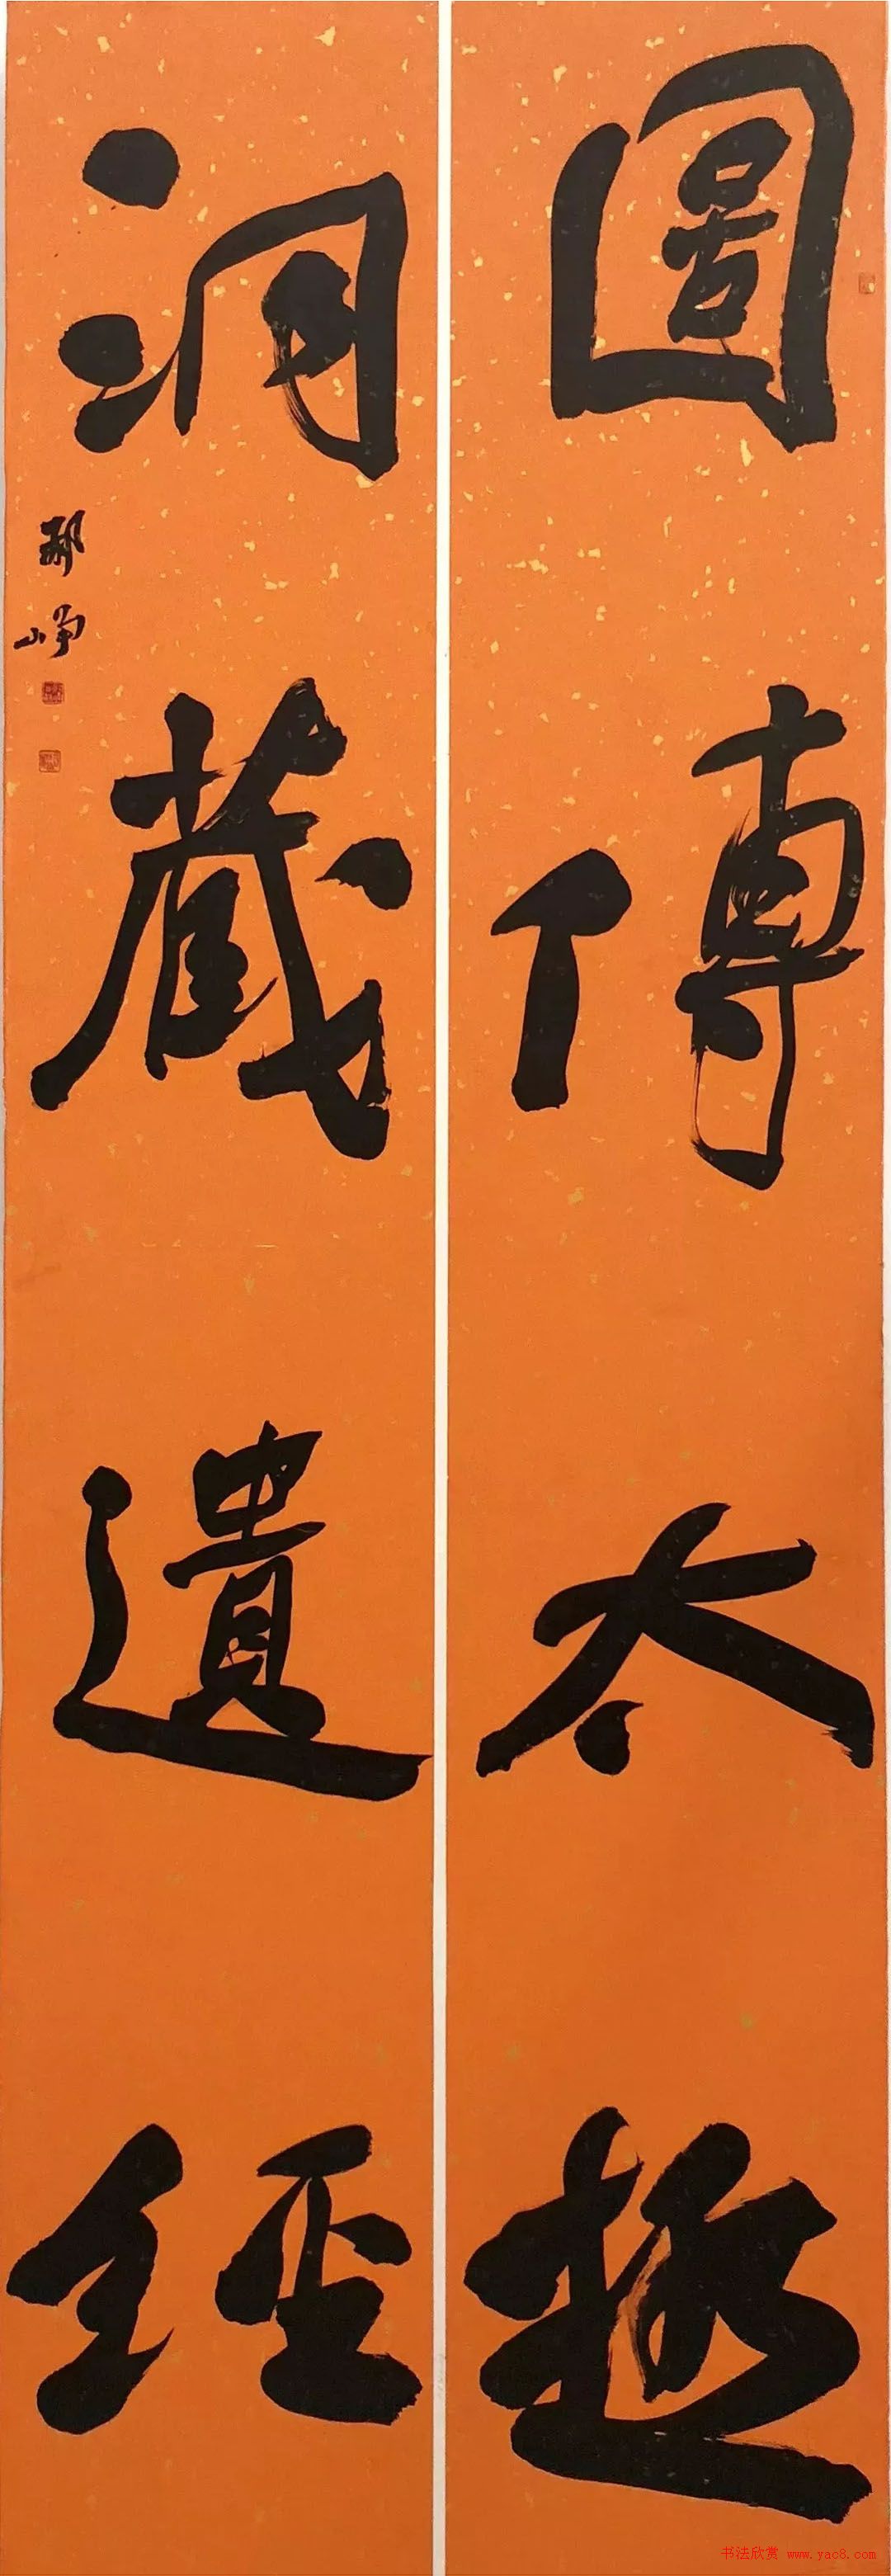 圖傳太極
洞藏遺經
书法欣赏 www.yac8.com